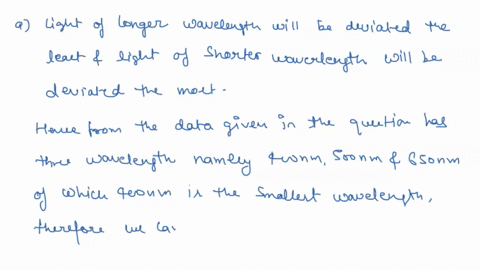 a) Light of longer wavelength will be deviated the
least & light of shorter wavelength will be
deviated the most.
Hence from the data given in the question has
three wavelength namely 400nm, 500nm & 650nm
of which 400nm is the smallest wavelength,
therefore we ca